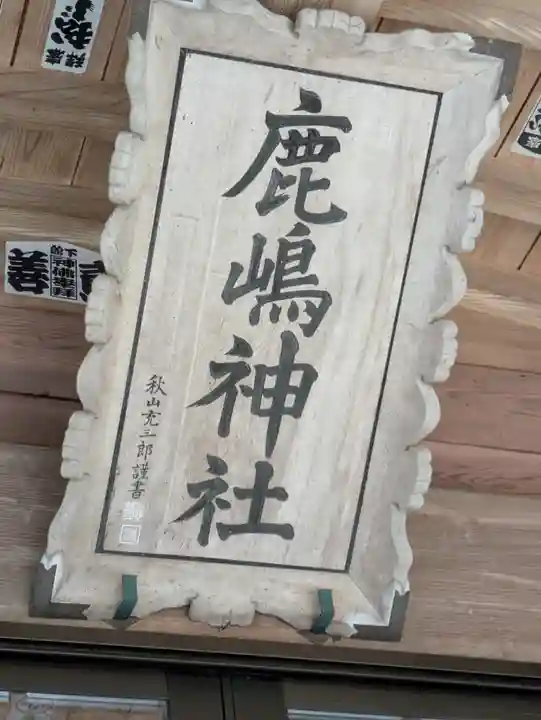 鹿嶋神社
秋山充三郎謹書